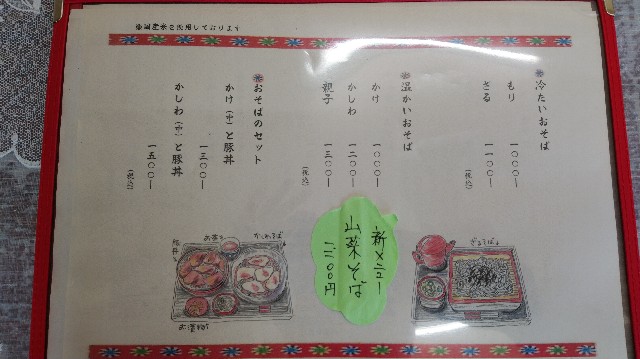 ※国産米を使用しております
冷たいおそば
もり 一〇〇〇ー
ざる 一一〇〇ー
(税込)
温かいおそば
かけ 一〇〇〇ー
かしわ 一二〇〇ー
親子 一三〇〇ー
(税込)
おそばのセット
かけ(中)と豚丼
一三〇〇ー
かしわ(中)と豚丼
一五〇〇ー
(税込)
新メニュー
山菜そば
一二〇〇円
ざるそば
かしわそば
豚丼
お漬物